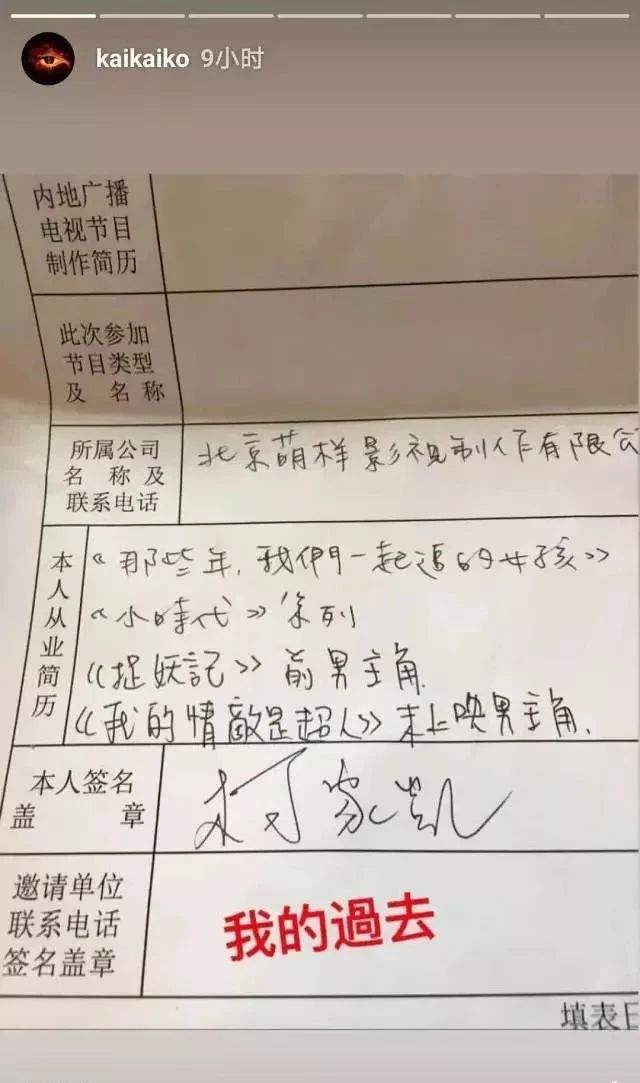 kaikaiko 9小时
内地广播
电视节目
制作简历
此次参加
节目类型
及 名 称
所属公司
名 称 及
联系电话
北京萌样影视制作有限公
本人从业简历
《那些年,我們一起追的女孩》
《小時代》系列
《捉妖記》前男主角
《我的情敵是超人》未上映男主角.
本人签名
盖 章
柯家凱
邀请单位
联系电话
签名盖章
我的過去
填表日